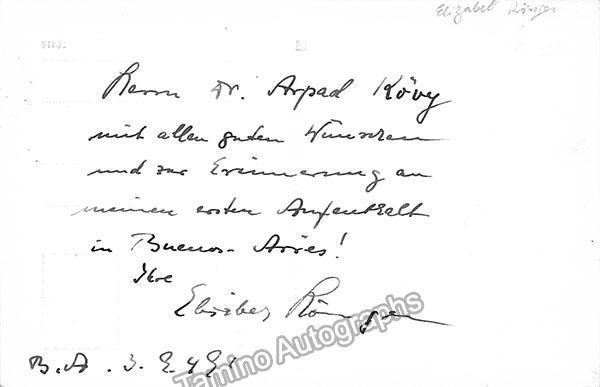 Elizabet Röngen
Herrn Dr. Arpad Kövy
mit allen guten Wünschen
und zur Erinnerung an
meinen ersten Aufenthalt
in Buenos-Aires!
Ihre
B.A. 3.
Tamino Autographs